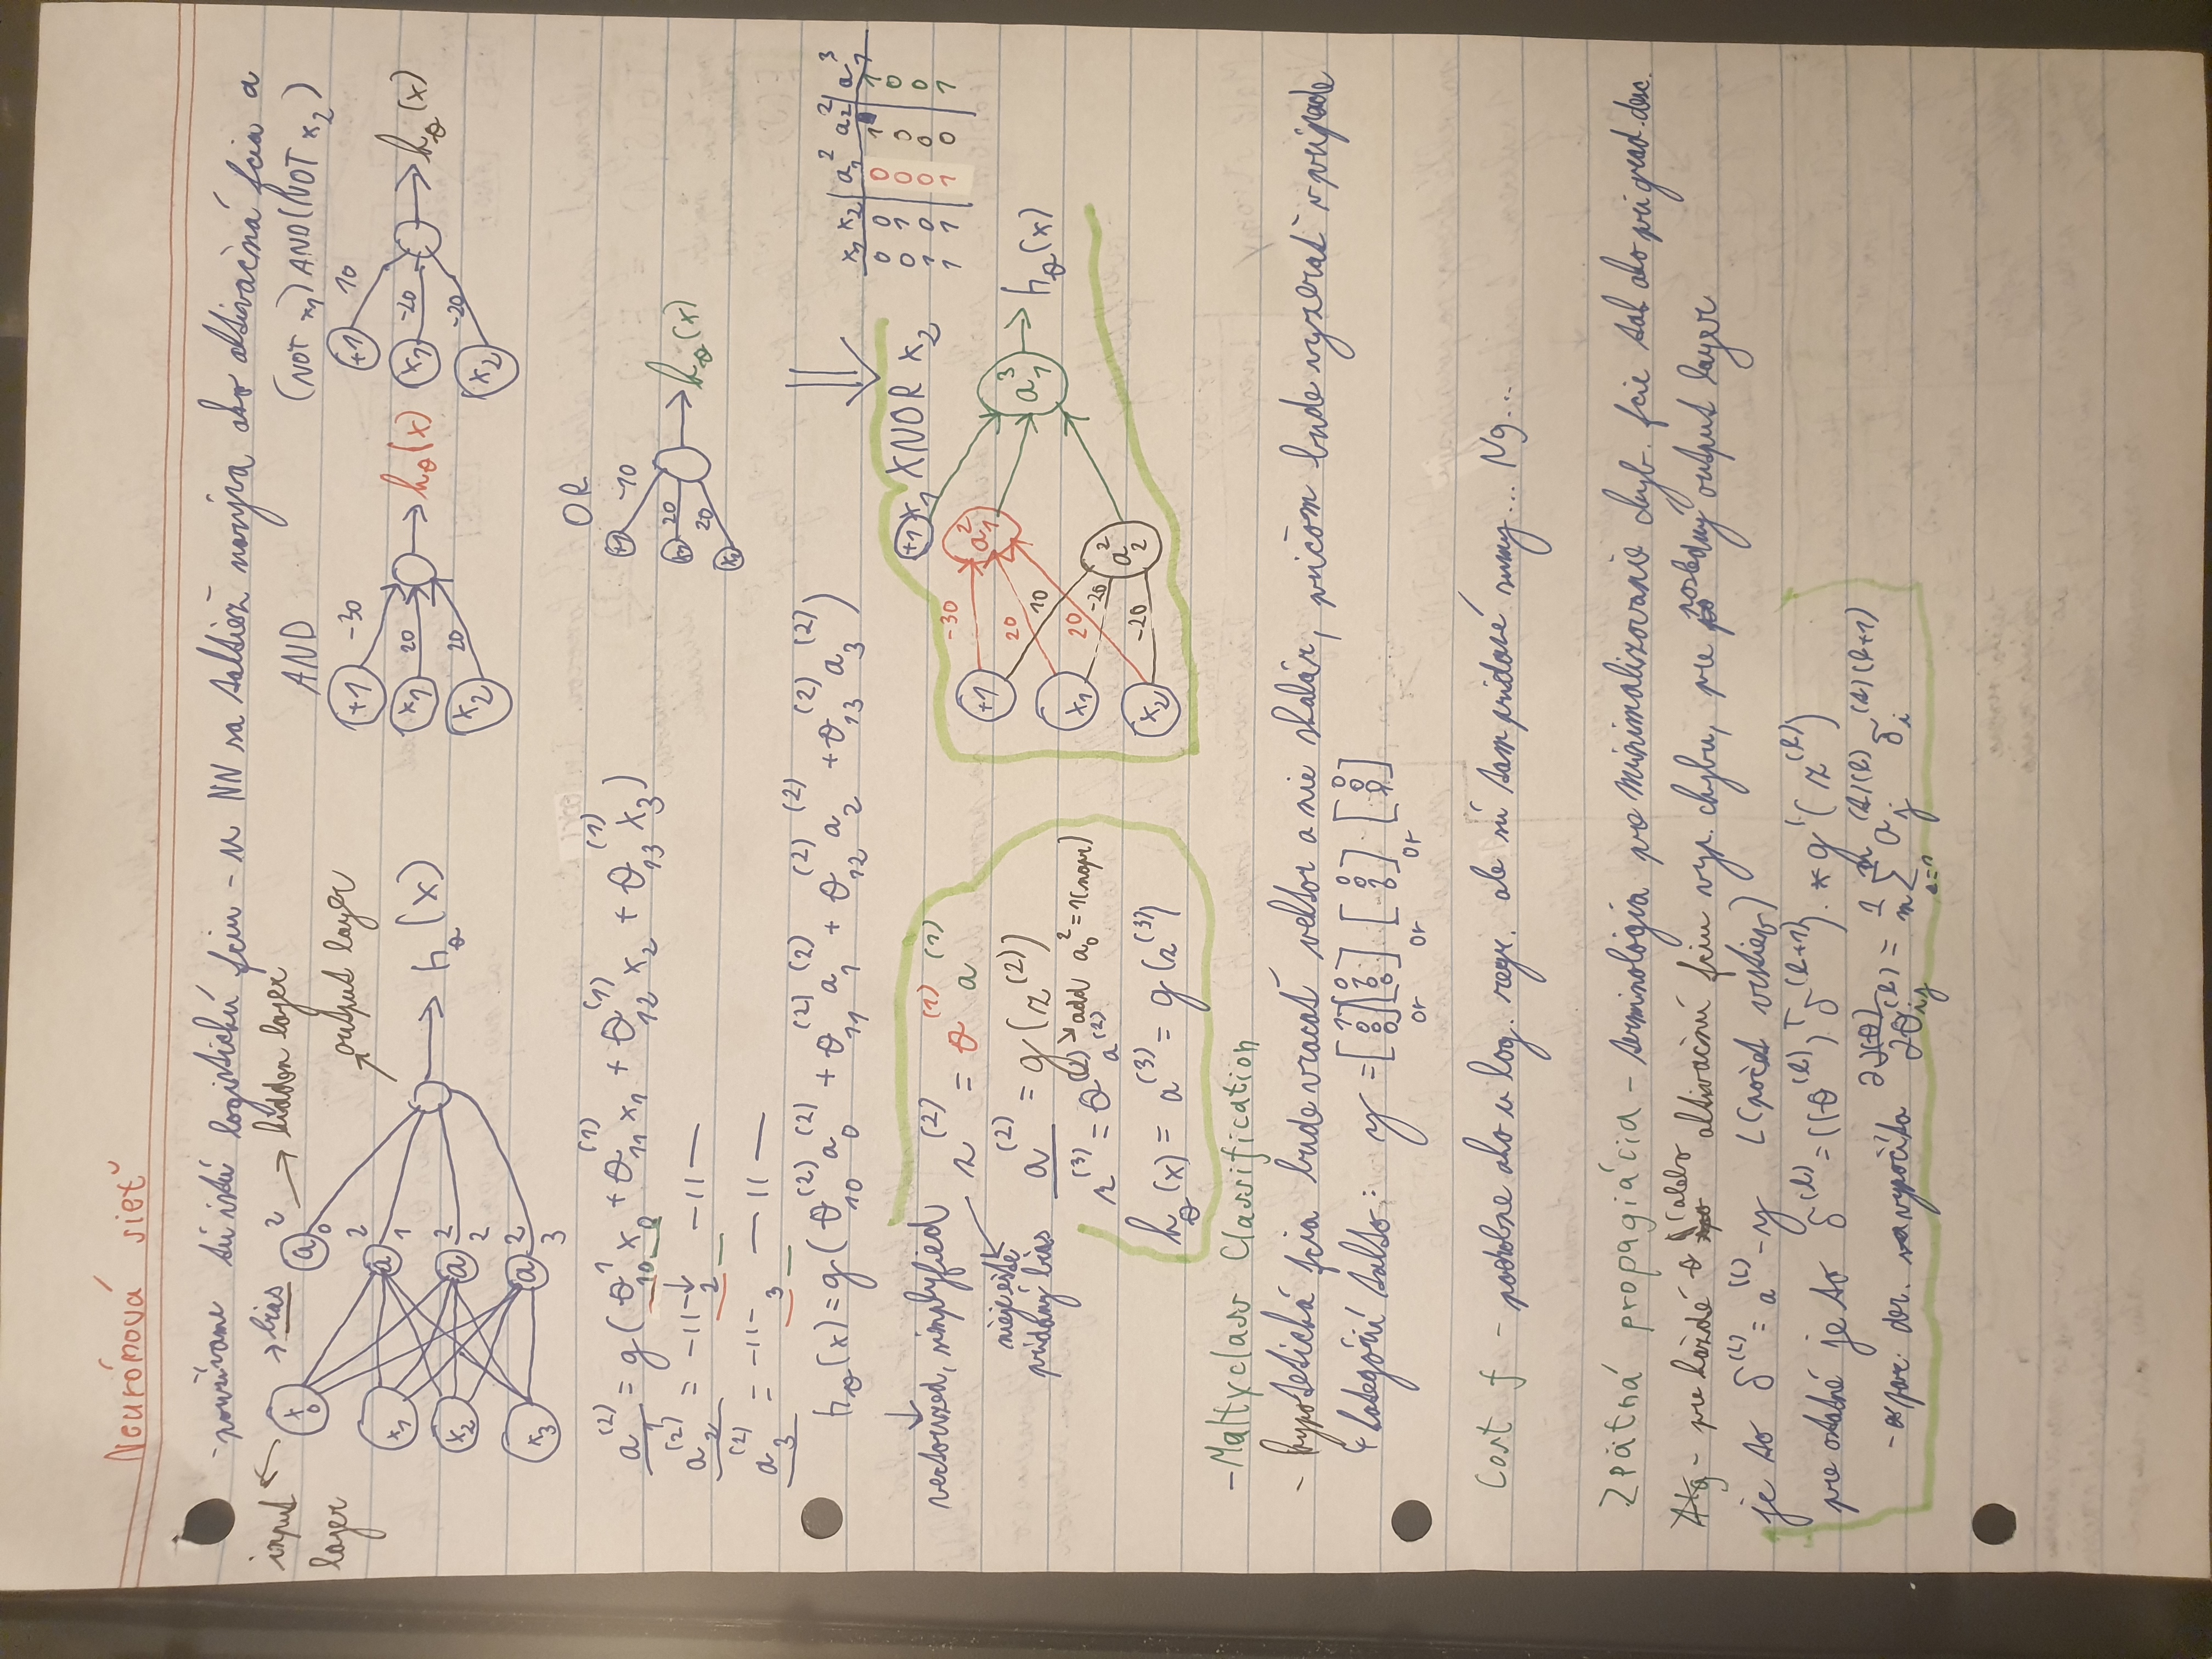 Neurónová sieť
- používame tú istú logistickú fciu - u NN sa taktiež nazýva ako aktivačná fcia a
input layer
x0
→ bias
a0^2
→ hidden layer
output layer
x1
x2
x3
a1^2
a2^2
a3^2
hθ(x)
AND
+1 -30
x1 20
x2 20
hθ(x)
(NOT x1) AND (NOT x2)
+1 10
x1 -20
x2 -20
hθ(x)
OR
+1 -10
x1 20
x2 20
hθ(x)
a1^(2) = g(θ10^1 x0 + θ11^(1) x1 + θ12^(1) x2 + θ13^(1) x3)
a2^(2) = -11- ↓ 2 -11-
a3^(2) = -11- 3 -11-
hθ(x) = g(θ10^(2) a0^(2) + θ11^(2) a1^(2) + θ12^(2) a2^(2) + θ13^(2) a3^(2))
x1 x2 a1^2 a2^2 a1^3
0 0 0 1 1
0 1 0 0 0
1 0 0 0 0
1 1 1 0 1
↓
vectorized, simplyfied
z^(2) = θ^(1) a^(1)
nieje ešte pridaný bias
a^(2) = g(z^(2))
↘ add a0^2 = 1 (napr)
z^(3) = θ^(2) a^(2)
hθ(x) = a^(3) = g(z^(3))
x1 XNOR x2
+1
+1 -30 a1^2
20 10
x1 20 -20
x2 -20 a2^2
a1^3
hθ(x)
- Maltyclass Classification
- hypotetická fcia bude vracať vektor a nie skalár, pričom bude vyzerať v prípade
4 kategórií takto: y = [1 0 0 0] [0 1 0 0] [0 0 1 0] [0 0 0 1]
or or or
Cost f - podobne ako u log. regr. ale sú tam pridané sumy... Ng...
Zpätná propagiácia - terminológia pre minimalizovanie chyb. fcie tak ako pri grad. desc.
Alg - pre každé θ (alebo aktivačnú fciu vyp. chybu, pre posledný output layer
je to δ^(L) = a^(L) - y L (počet vrstiev)
pre ostatné je to δ^(l) = ((θ^(l))^T δ^(l+1)) .* g'(z^(l))
- par. der. vypočíta ∂J(θ)/∂θij^(l) = 1/m Σ^m t=1 aj^(t)(l) δi^(t)(l+1)